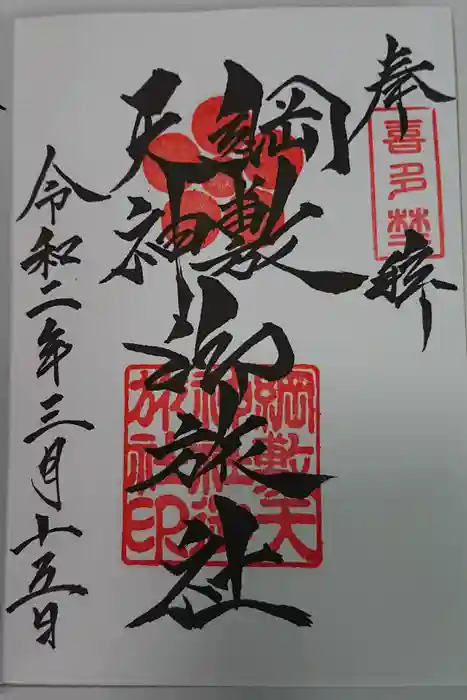 奉拝
喜多埜
綱敷
天神
御旅社
綱敷天
神社御
旅社印
令和二年三月十五日